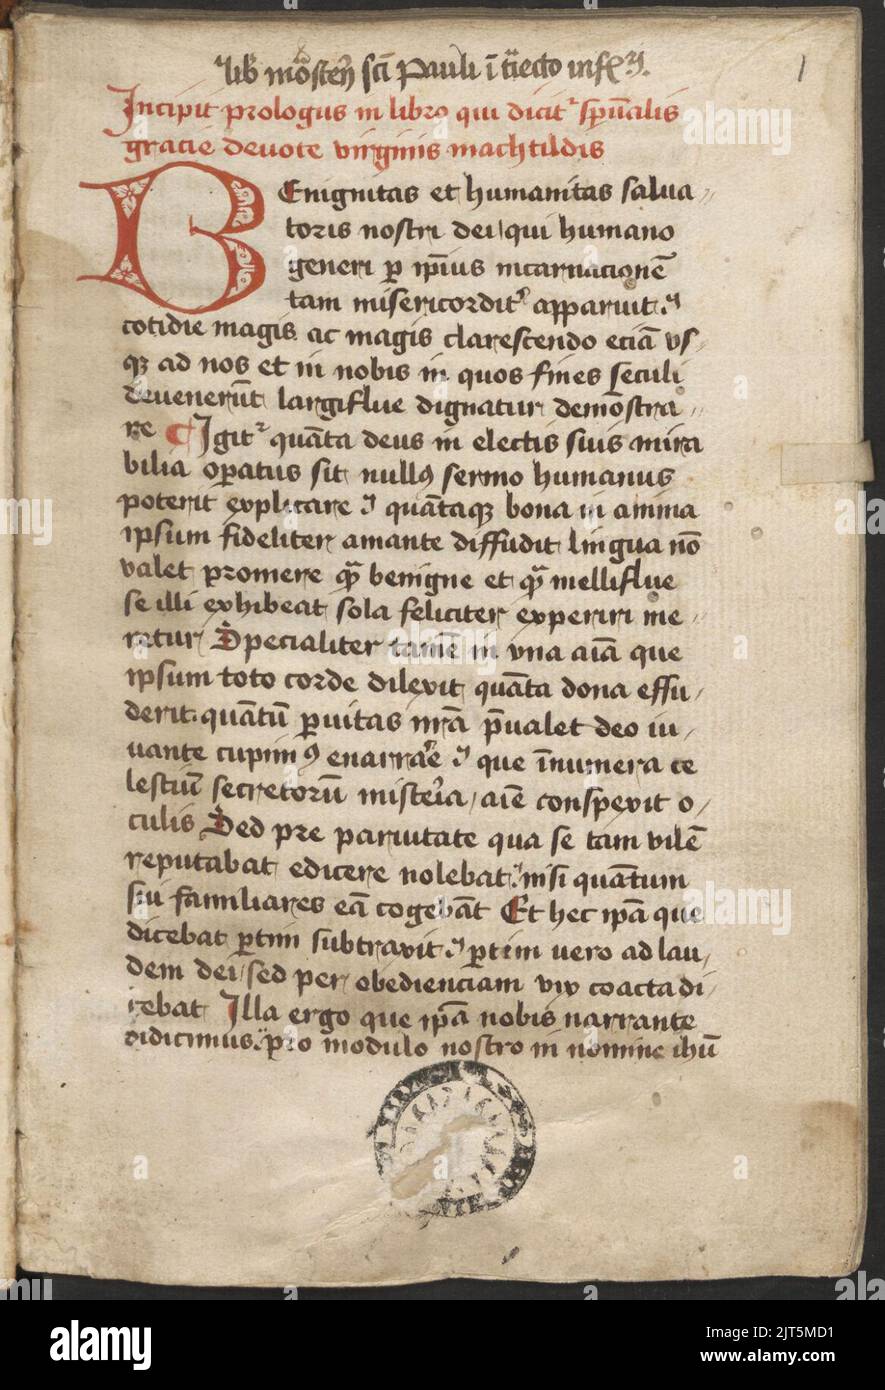 lib' mo̅ste'y sci̅ Pauli i̅ t̅iecto infʳ'.
1
Incipit prologus in libro qui dicit' sp̅ualis
gracie deuote virginis machtildis
BEnignitas et humanitas salua
toris nostri dei qui humano
generi p ip̅ius incarnacione̅
tam misericordit' apparuit
cotidie magis ac magis clarescendo ecia̅ vs
qꝫ ad nos et in nobis in quos fines seculi
deuenerut̅ largiflue dignatur demo̅stra
re Igit' qua̅ta deus in electis suis mira
bilia op̅atus sit nullꝰ sermo humanus
poterit explicare qua̅taqꝫ bona in anima
ipsum fideliter amante diffudit lingua no̅
valet promere qua̅ benigne et qua̅ melliflue
se illi exhibeat sola feliciter experiri me
retur Specialiter tame̅ in vna ai̅a que
ipsum toto corde dilexit qua̅ta dona effu
derit quantu̅ p̲uitas nr̅a p̅ualet deo iu
uante cupimꝰ enarrare que i̅numera ce
lestiu̅ secretoru̅ misteria aie̅ conspexit o
culis Sed pre paruitate qua se tam vile̅
reputabat edicere nolebat nisi qua̅tum
sui familiares ea̅ cogeba̅t Et hec ip̅a que
dicebat p̲tim subtraxit p̲tim vero ad lau
dem dei sed per obedienciam vix coacta di
cebat Illa ergo que ip̅a nobis narrante
didicimus pro modulo nostro in nomine ihu̅
alamy
Image ID: 2JT5MD1
www.alamy.com